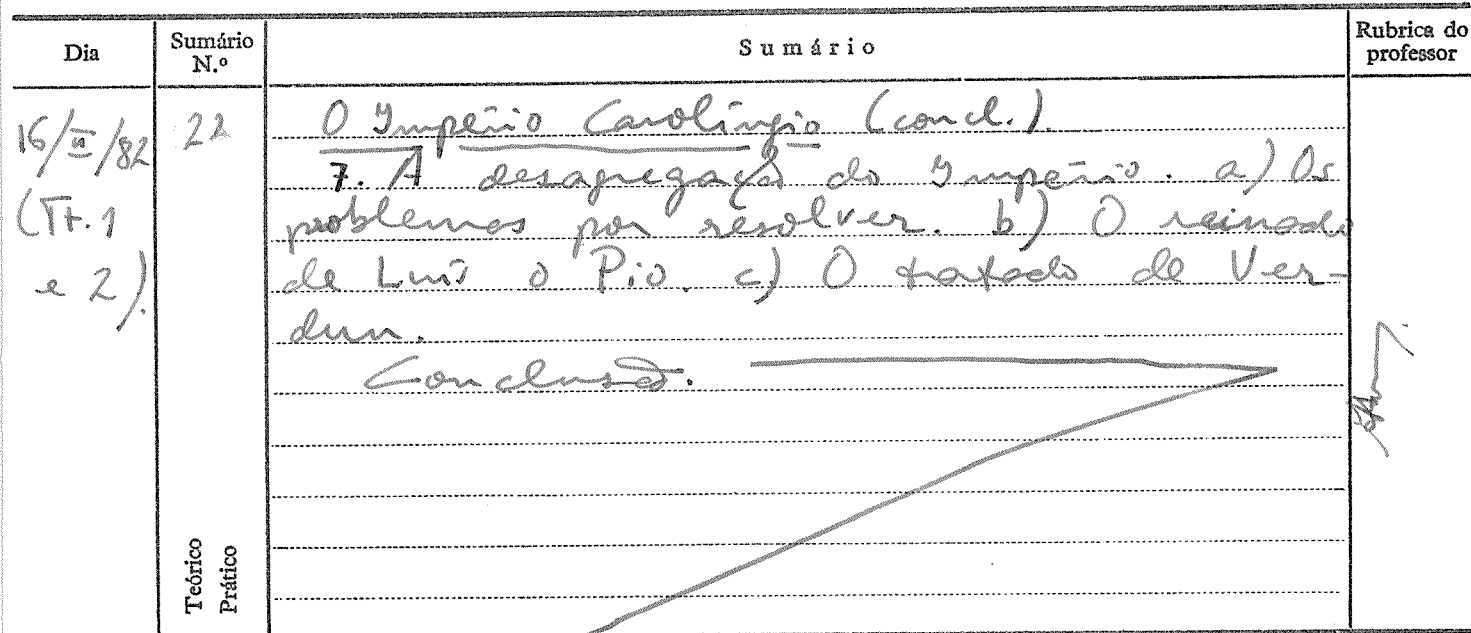 Dia
Sumário N.º
Sumário
Rubrica do professor
16/II/82
(Tt. 1
e 2).
22
O Império Carolíngio (concl.).
7. A desagregação do Império. a) Os
problemas por resolver. b) O reinado
de Luís o Pio. c) O tratado de Ver-
dun.
Conclusão.
Teórico
Prático